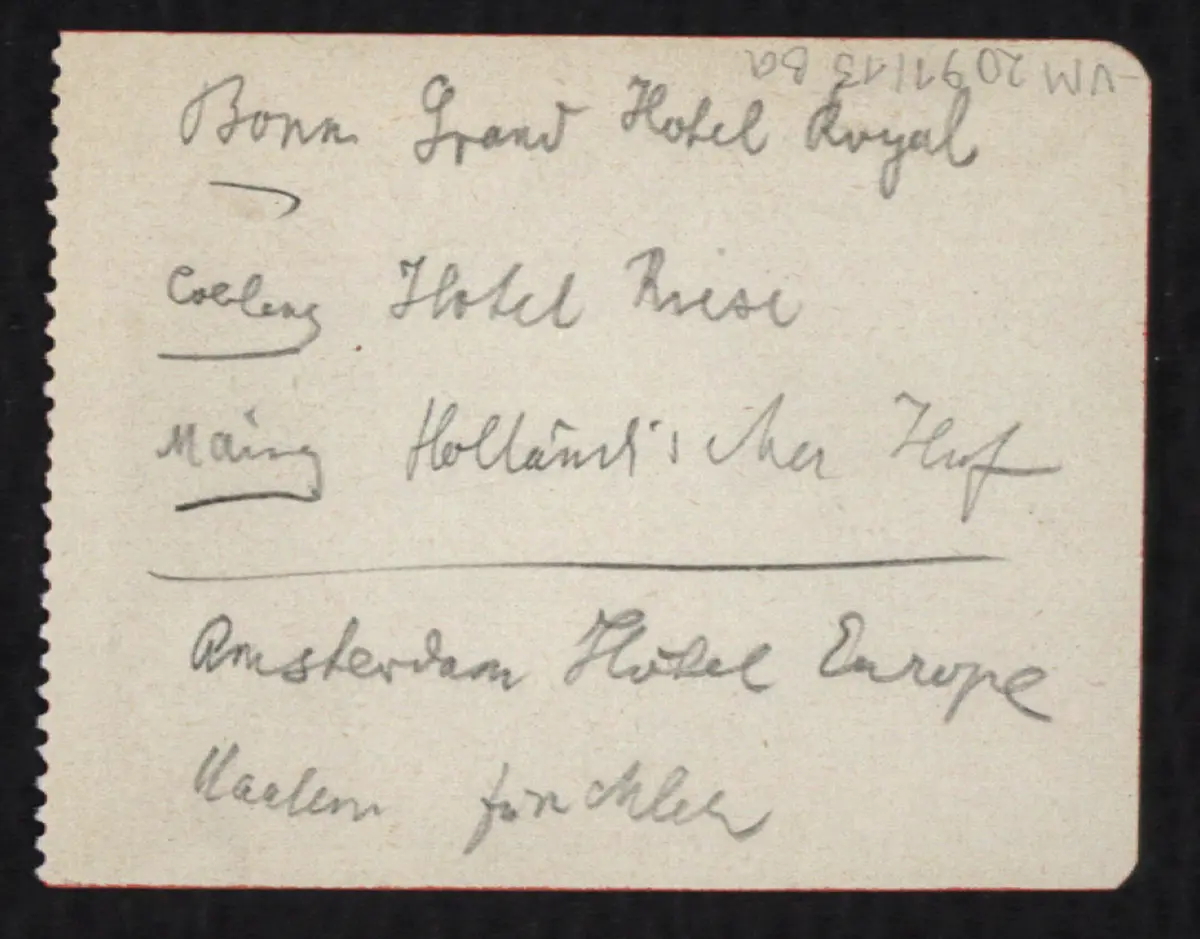 VM 2091/13 Ba
Bonn Grand Hotel Royal
Coblenz Hotel Riese
Mainz Holländischer Hof
Amsterdam Hotel Europe
Haalem